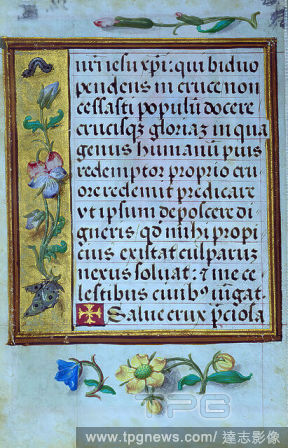 um iesu xpi: qui biduo
pendens in cruce non
cessasti populū docere
crucisqȝ gloriaȝ in qua
genus humanū pius
redemptor proprio cru
ore redemit predicare
vt ipsum deposcere di
gneris / qd mihi propi
cius existat culparuȝ
nexus soluat: & me ce
lestibus ciuibꝰ iūgat.
Salue crux pciosa
TPG
www.tpgnews.com/達志影像